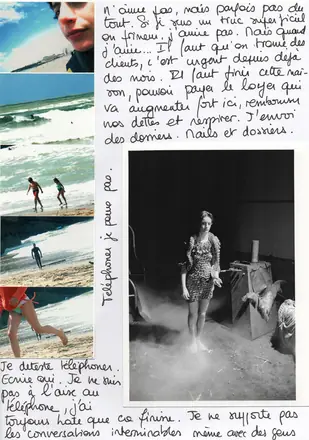 n'aime pas, mais parfois pas du
tout. Si je suis un truc superficiel
ou frimeur, j'aime pas. Mais quand
j'aime... Il faut qu'on trouve des
clients, c'est urgent depuis déjà
des mois. Il faut finir cette mai-
son, pouvoir payer le loyer qui
va augmenter fort ici, rembourser
nos dettes et respirer. J'envoi
des dossiers. Mails et dossiers.
Téléphoner je peux pas.
Je déteste téléphoner.
Ecrire oui. Je ne suis
pas à l'aise au
téléphone, j'ai
toujours hâte que ça finisse. Je ne supporte pas
les conversations interminables même avec des gens